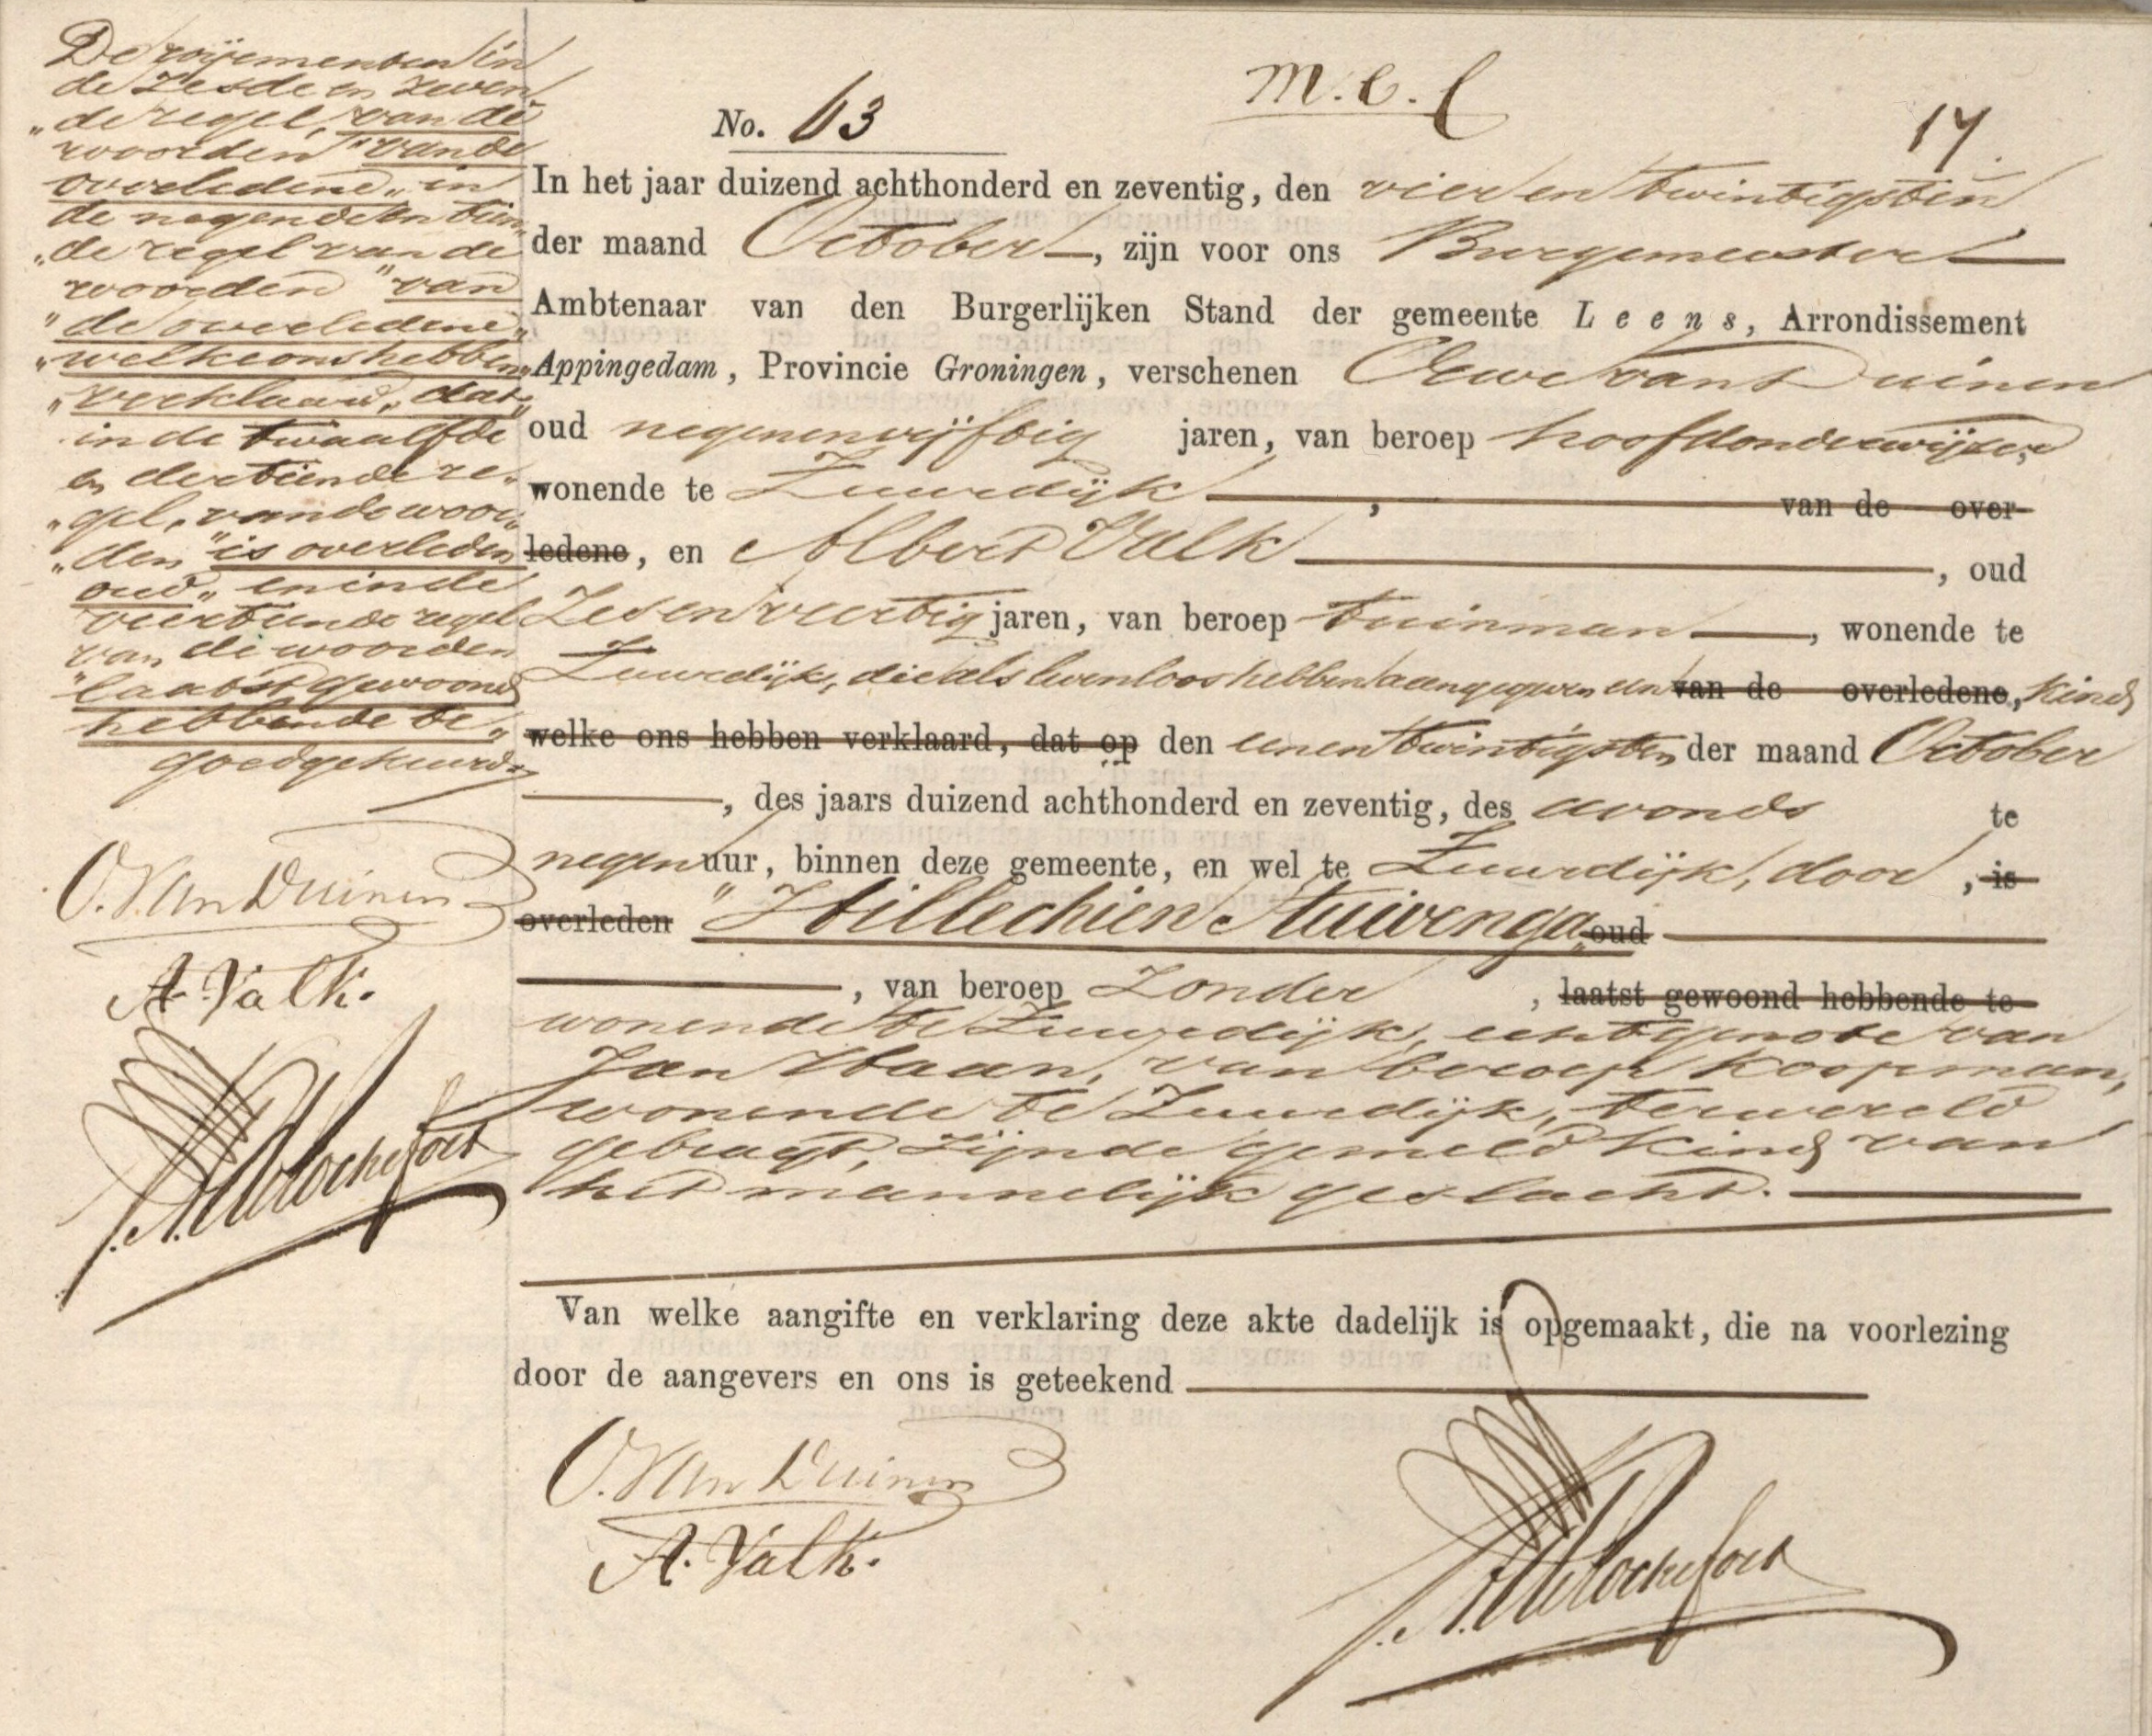 De royementen in
de zesde en zeven
"de regel, van de
woorden "van de
overledene" in
de negende en tien
"de regel van de
woorden "van
"de overledene"
"welke ons hebben"
"verklaard, dat"
in de twaalfde
en dertiende re-
"gel, van de woor-
"den "is overleden
oud" en in de
veertiende regel
van de woorden
"laatst gewoond
hebbende te"
goedgekeurd.
O. Van Duinen
A. Valk.
M. C. C
No. 63
17.
In het jaar duizend achthonderd en zeventig, den vier en twintigsten
der maand October, zijn voor ons Burgemeester
Ambtenaar van den Burgerlijken Stand der gemeente Leens, Arrondissement
Appingedam, Provincie Groningen, verschenen van Duinen
oud negenenvijftig jaren, van beroep hoofdonderwijzer,
wonende te Zuurdijk, van de over-
ledene, en Albert Valk, oud
Zesenveertig jaren, van beroep tuinman, wonende te
Zuurdijk, die als levenloos hebben aangegeven een van de overledene, kind
welke ons hebben verklaard, dat op den eenentwintigsten der maand October
, des jaars duizend achthonderd en zeventig, des avonds te
negen uur, binnen deze gemeente, en wel te Zuurdijk, door, is
overleden "Hillechien Stuivenga" oud
, van beroep zonder, laatst gewoond hebbende te
wonende te Zuurdijk, echtgenote van
Jan Haan, van beroep koopman,
wonende te Zuurdijk, ter wereld
gebragt, zijnde gemeld kind van
het mannelijk geslacht.
Van welke aangifte en verklaring deze akte dadelijk is opgemaakt, die na voorlezing
door de aangevers en ons is geteekend
O. Van Duinen
A. Valk.